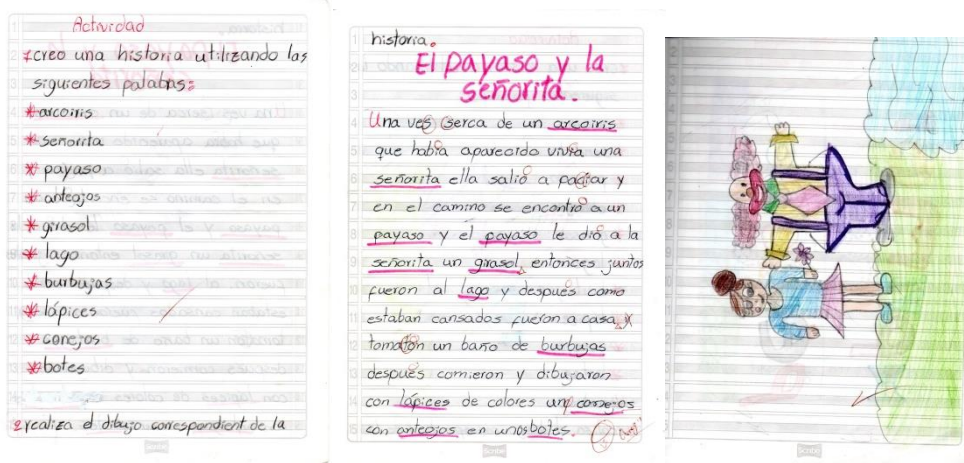 Actividad
1 creo una historia utilizando las
siguientes palabras:
* arcoiris
* señorita
* payaso
* anteojos
* girasol
* lago
* burbujas
* lápices
* conejos
* botes
2 realiza el dibujo correspondient de la
historia.
El payaso y la
señorita.
Una ves serca de un arcoiris
que había aparecido vivía una
señorita ella salió a paciar y
en el camino se encontró a un
payaso y el payaso le dió a la
señorita un girasol, entonces juntos
fueron al lago y después como
estaban cansados fueron a casa, y
tomaron un baño de burbujas
después comieron y dibujaron
con lápices de colores un conejos
con anteojos en unos botes.
Scribe
Scribe
Scribe